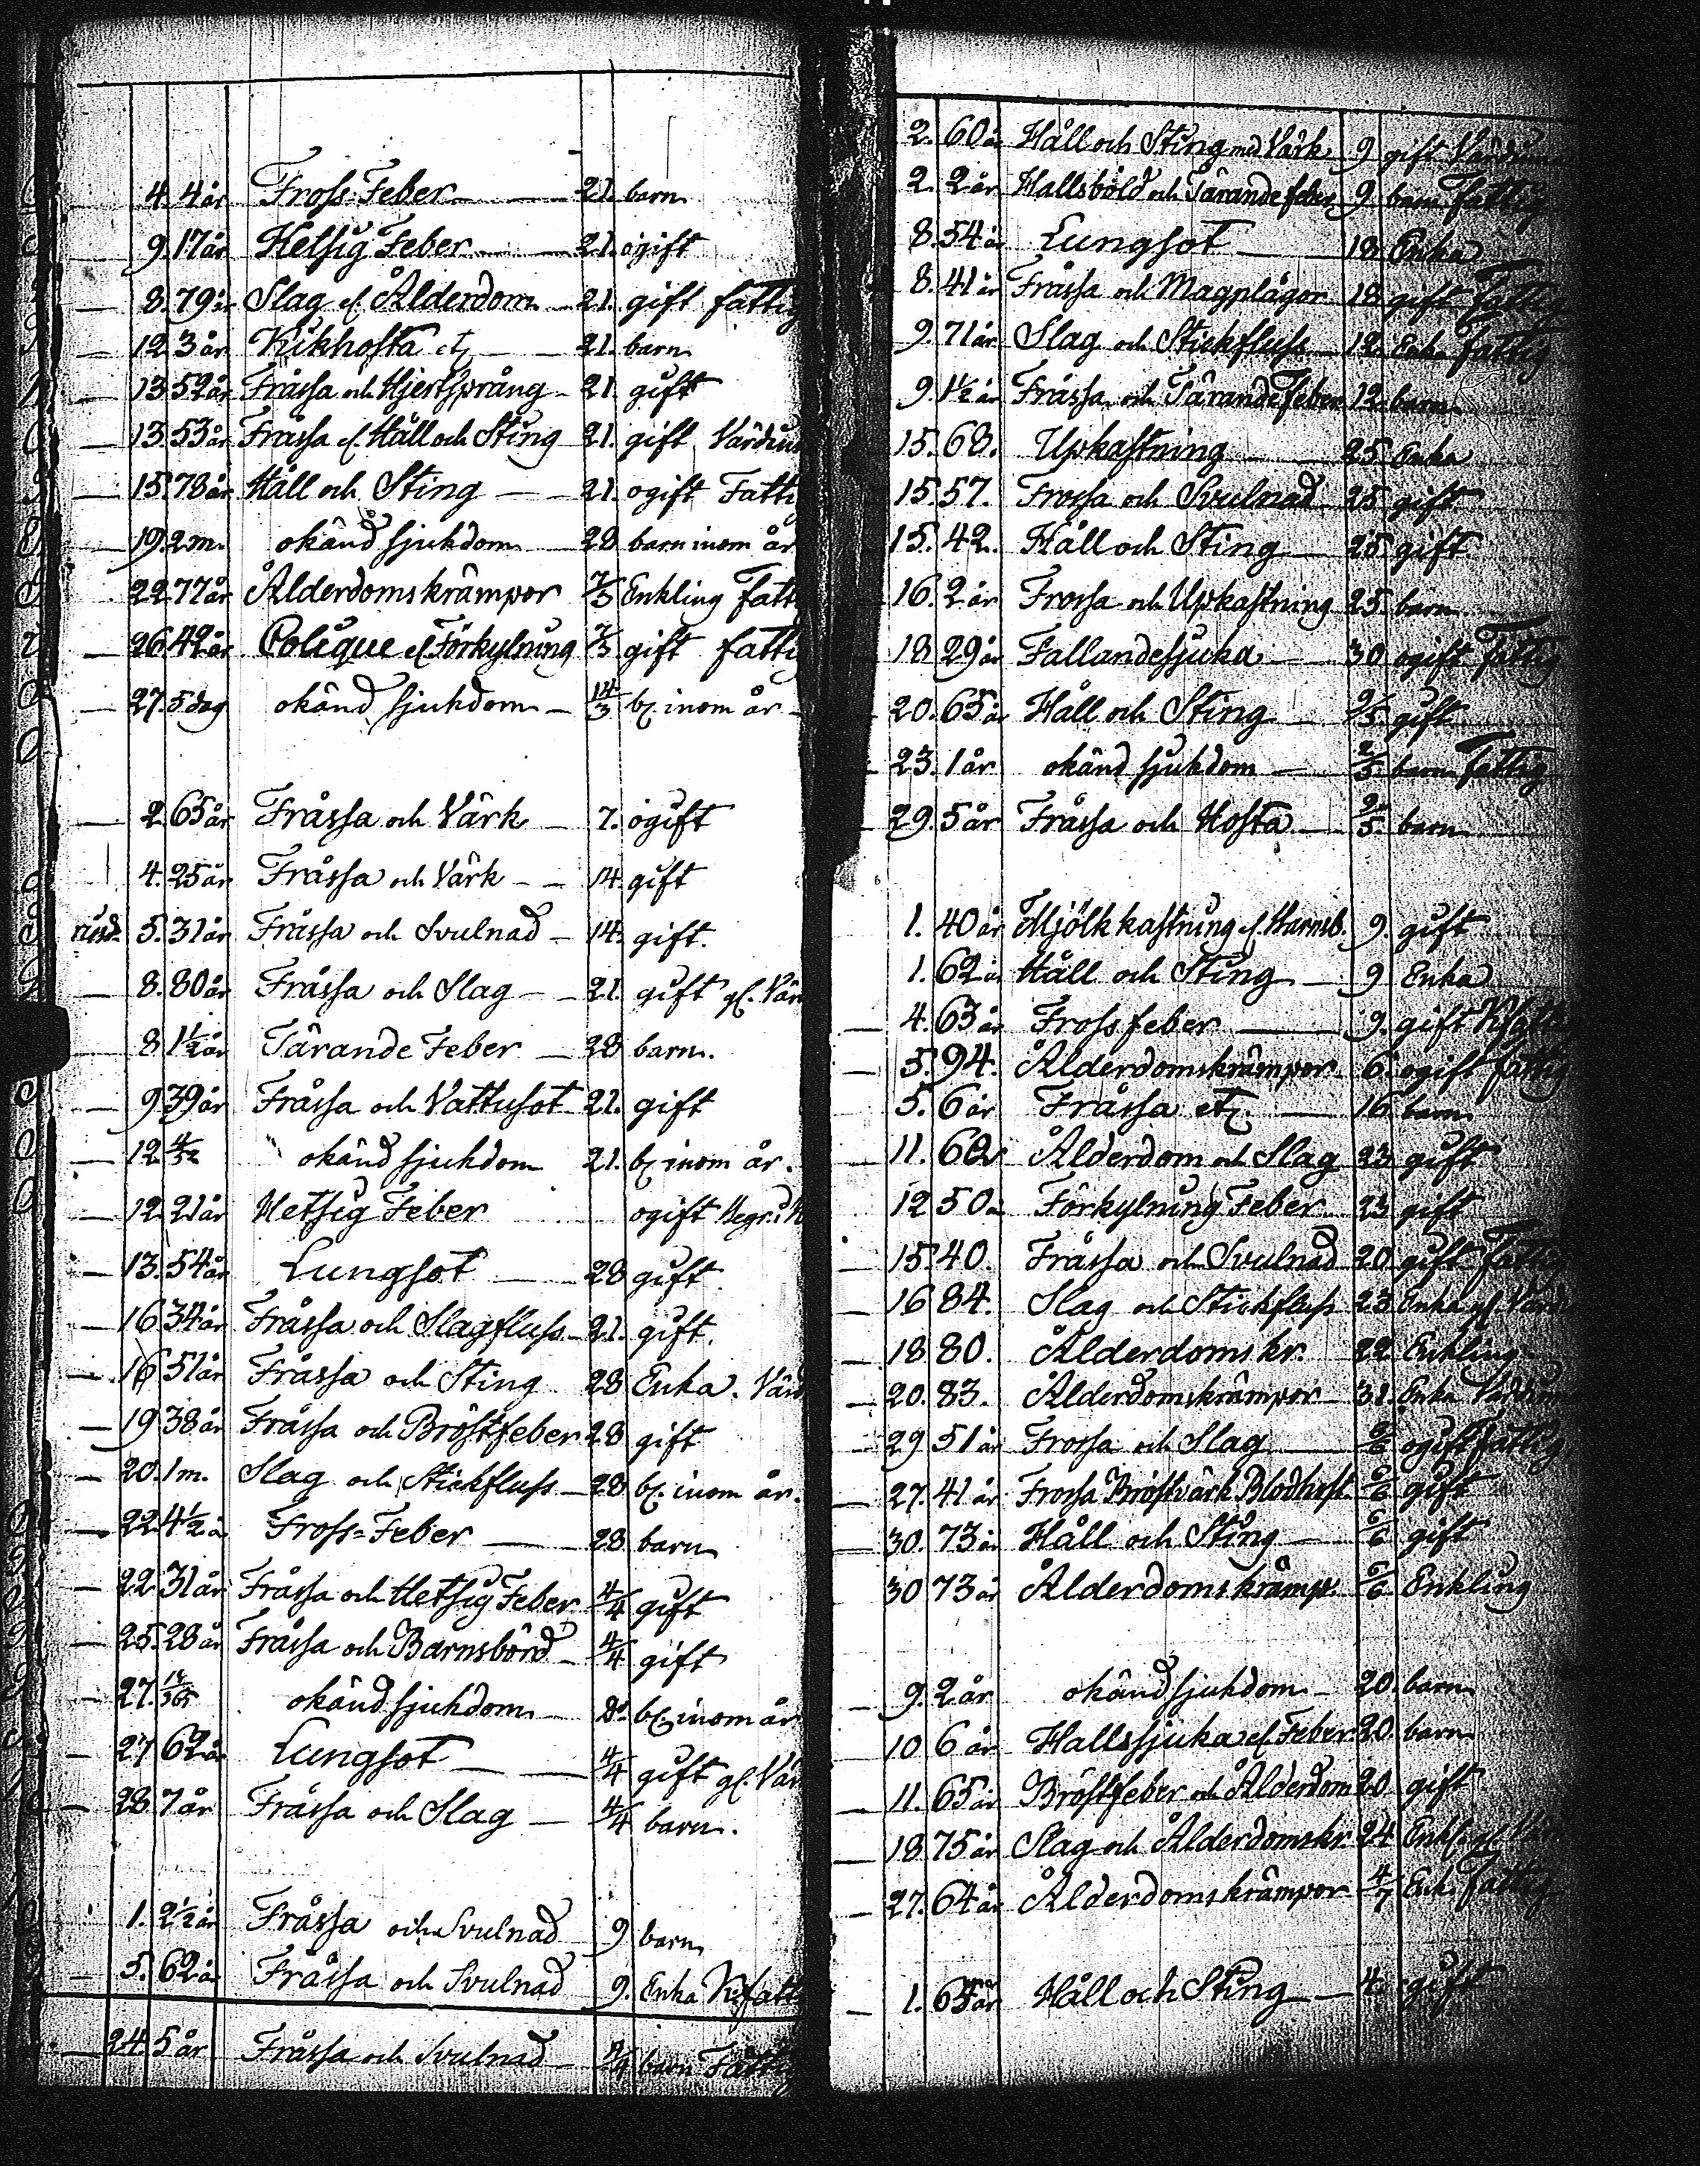 4. 4 år Fross-Feber 21. barn
9. 17 år Hetsig Feber 21. ogift
8. 79 år Slag ef. Ålderdom 21. gift fattig
12. 3 år Kikhosta etz 21. barn
13. 52 år Fråssa och Hjertsprång 21. gift
13. 53 år Fråssa ef. Håll och Sting 21. gift
15. 78 år Håll och Sting 21. ogift Fatti
19. 2 m. okänd sjukdom 28 barn inom år
22. 77 år Ålderdomskrämpor 7/3 Enkling Fatt
26. 42 år Colique ef Förkylning 7/3 gift fatti
27. 5 dag okänd sjukdom 14/3 bz. inom år
2. 65 år Fråssa och Värk 7. ogift
4. 25 år Fråssa och Värk 14. gift
5. 31 år Fråssa och Svulnad 14. gift.
8. 80 år Fråssa och Slag 21. gift gl. Vär
8. 1½ år Tärande Feber 28 barn.
9. 39 år Fråssa och Vattusot 21. gift
12. 4/52 okänd sjukdom 21. bz inom år.
12. 21 år Hetsig Feber ogift
13. 54 år Lungsot 28 gift
16 34 år Fråssa och Slagfluss 21. gift.
16 51 år Fråssa och Sting 28 Enka. Värd
19 38 år Fråssa och Bröstfeber 28 gift
20. 1 m. Slag och Stickfluss 28 bz. inom år.
22. 4½ å Fross=Feber 28 barn
22 31 år Fråssa och Hetsig Feber 4/4 gift
25. 28 år Fråssa och Barnsbörd 4/4 gift
27. okänd sjukdom bz. inom år
27 62 år Lungsot 4/4 gift gl. Vär
28 7 år Fråssa och Slag 4/4 barn.
1. 2½ år Fråssa och Svulnad 9 barn
5. 62 år Fråssa och Svulnad 9. Enka
24. 5 år Fråssa och Svulnad barn Fatti
2. 60 å Håll och Sting med Värk 9 gift
2. 2 år Hallsböld och Tärande feber 9. barn Fattig
8. 54 år Lungsot 18 Enka
8. 41 år Fråssa och Magplågor 18 gift Fattig
9. 71 år Slag och Stickfluss 12. Enka Fattig
9. 1½ år Fråssa och Tärande Feber 12. barn
15. 68. Upkastning 25 Enka
15. 57. Frossa och Svulnad 25 gift
15. 42. Håll och Sting 25 gift
16. 2 år Frossa och Upkastning 25. barn
18 29 år Fallandesjuka 30 ogift Fattig
20. 65 år Håll och Sting 2/5. gift
23. 1 år okänd sjukdom 2/5. barn Fattig
29. 5 år Fråssa och Hosta 2/5. barn
1. 40 år Mjölkkastning ef. Barnsb. 9. gift
1. 62 år Håll och Sting 9 Enka
4. 63 år Frossfeber 9. gift
5. 94. Ålderdomskrämpor 6. ogift fattig
5. 6 år Fråssa etz. 16 barn
11. 62 Ålderdom och Slag 23 gift
12 50 å Förkylning Feber 23 gift
15. 40. Fråssa och Svulnad 20 gift Fattig
16 84. Slag och Stickfluss 23 Enka gl. Värd
18 80. Ålderdomskr. 22 Enkling
20. 83. Ålderdomskrämpor 31. Enka
29 51 år Frossa och Slag ogift fattig
27. 41 år Frossa Bröstvärk Blodhost. gift
30. 73 år Håll och Sting gift
30 73 år Ålderdomskrämp. Enkling
9. 2 år okänd sjukdom 20. barn
10 6 år Hallssjuka ef Feber 20. barn
11. 65 år Bröstfeber och Ålderdom 20 gift
18 75 år Slag och Ålderdomskr. 24 Enkl. gl. Vär
27. 64 år Ålderdomskrämpor 4/7 Enk. Fattig
1. år Håll och Sting 4. gift